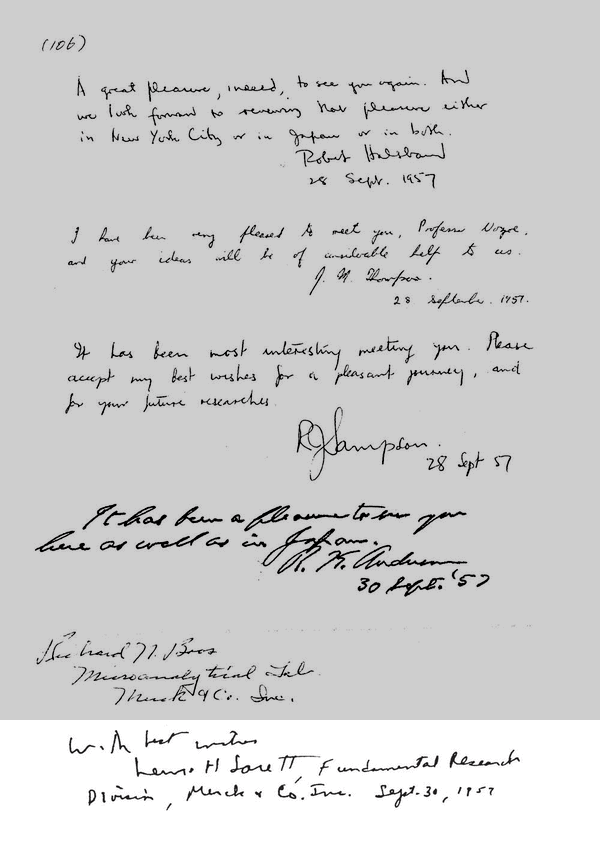 (106)
A great pleasure, indeed, to see you again. And
we look forward to renewing that pleasure either
in New York City or in Japan or in both.
Robert Halsband
28 Sept. 1957
I have been very pleased to meet you, Professor Nozoe,
and your ideas will be of considerable help to us.
J. N. Thompson.
28 September. 1957.
It has been most interesting meeting you. Please
accept my best wishes for a pleasant journey, and
for your future researches.
R J Sampson.
28 Sept 57
It has been a pleasure to see you
here as well as in Japan.
R. K. Anderson
30 Sept. '57
Richard N. Boos
Microanalytical Lab.
Merck & Co. Inc.
With best wishes
Lewis H Sarett, Fundamental Research
Division, Merck & Co. Inc. Sept. 30, 1957